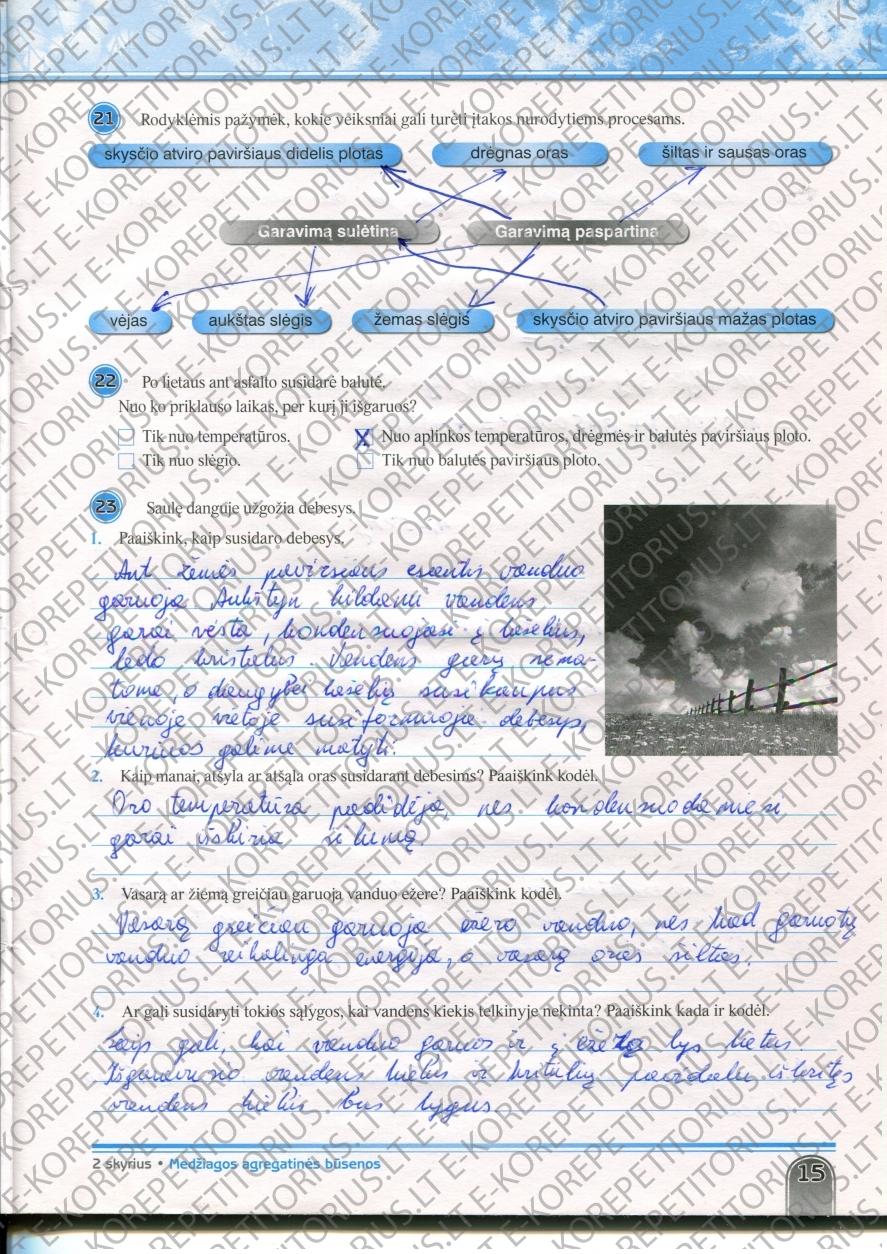 21 Rodyklėmis pažymėk, kokie veiksniai gali turėti įtakos nurodytiems procesams.
skysčio atviro paviršiaus didelis plotas drėgnas oras šiltas ir sausas oras
Garavimą sulėtina Garavimą paspartina
vėjas aukštas slėgis žemas slėgis skysčio atviro paviršiaus mažas plotas
22 Po lietaus ant asfalto susidarė balutė.
Nuo ko priklauso laikas, per kurį ji išgaruos?
Tik nuo temperatūros. X Nuo aplinkos temperatūros, drėgmės ir balutės paviršiaus ploto.
Tik nuo slėgio. Tik nuo balutės paviršiaus ploto.
23 Saulę danguje užgožia debesys.
1. Paaiškink, kaip susidaro debesys.
Ant žemės paviršiaus esantis vanduo
garuoja. Aukštyn kildami vandens
garai vėsta, kondensuojasi į lašelius,
ledo kristalus. Vandens garų nema-
tome, o daugybei lašelių susikaupus
vienoje vietoje susiformuoja debesys,
kuriuos galime matyti.
2. Kaip manai, atšyla ar atšąla oras susidarant debesims? Paaiškink kodėl.
Oro temperatūra padidėja, nes kondensuodamiesi
garai išskiria šilumą.
3. Vasarą ar žiemą greičiau garuoja vanduo ežere? Paaiškink kodėl.
Vasarą greičiau garuoja ežero vanduo, nes kad garuotų
vanduo reikalinga energija, o vasarą oras šiltas.
4. Ar gali susidaryti tokios sąlygos, kai vandens kiekis telkinyje nekinta? Paaiškink kada ir kodėl.
Taip gali, kai vanduo garuos ir į ežerą lys lietus.
Išgaravusio vandens kiekis ir kritulių pavidalu iškritęs
vandens kiekis bus lygus.
2 skyrius • Medžiagos agregatinės būsenos
15
E-KOREPETITORIUS.LT